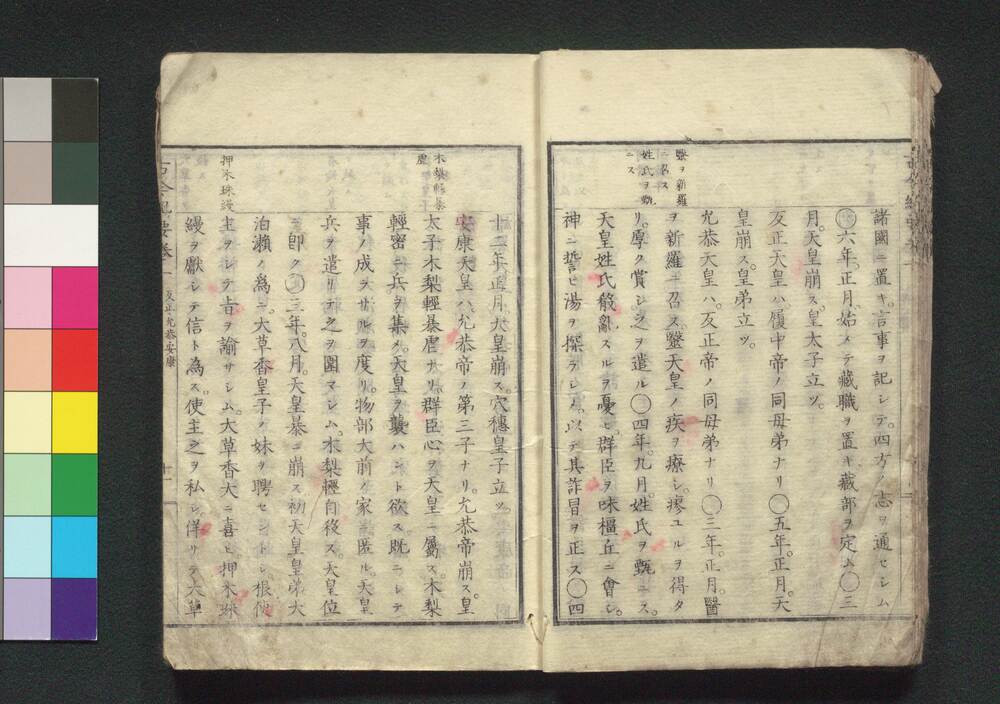 諸國ニ置キ。言事ヲ記シテ。四方ノ志ヲ通セシム
〇六年。正月。始メテ藏職ヲ置キ藏部ヲ定ム〇三
月。天皇崩ス。皇太子立ツ。
反正天皇ハ。履中帝ノ同母弟ナリ〇五年。正月。天
皇崩ス。皇弟立ツ。
允恭天皇ハ。反正帝ノ同母弟ナリ〇三年。正月。醫
醫ヲ新羅
ニ召ス
ヲ新羅ニ召ス。醫天皇ノ疾ヲ療シ。瘳ユルヲ得タ
姓氏ヲ甄
ニス
リ。厚ク賞シ之ヲ遣ル〇四年。九月。姓氏ヲ甄ニス。
天皇姓氏殽亂スルヲ憂ヒ。群臣ヲ味橿丘ニ會シ。
神ニ誓ヒ湯ヲ探ラシメ。以テ其詐冒ヲ正ス〇四
十二年。正月。天皇崩ス。穴穗皇子立ツ。
安康天皇ハ。允恭帝ノ第三子ナリ。允恭帝崩ス。皇
木梨輕暴
虐
太子木梨輕暴虐ナリ。群臣心ヲ天皇ニ屬ス。木梨
輕密ニ兵ヲ集メ。天皇ヲ襲ハント欲ス。既ニシテ
事ノ成ラサルヲ度リ。物部大前ノ家ニ匿ル。天皇
兵ヲ遣リテ之ヲ圍マシム。木梨輕自殺ス。天皇位
ニ即ク〇三年。八月。天皇暴ニ崩ス初天皇皇弟大
泊瀬ノ爲ニ。大草香皇子ノ妹ヲ聘セントシ根使
押木珠縵
主ヲシテ旨ヲ諭サシム。大草香大ニ喜ヒ。押木珠
縵ヲ獻シテ信ト為ス。使主之ヲ私シ。佯リテ大草
反正允恭安康
十一